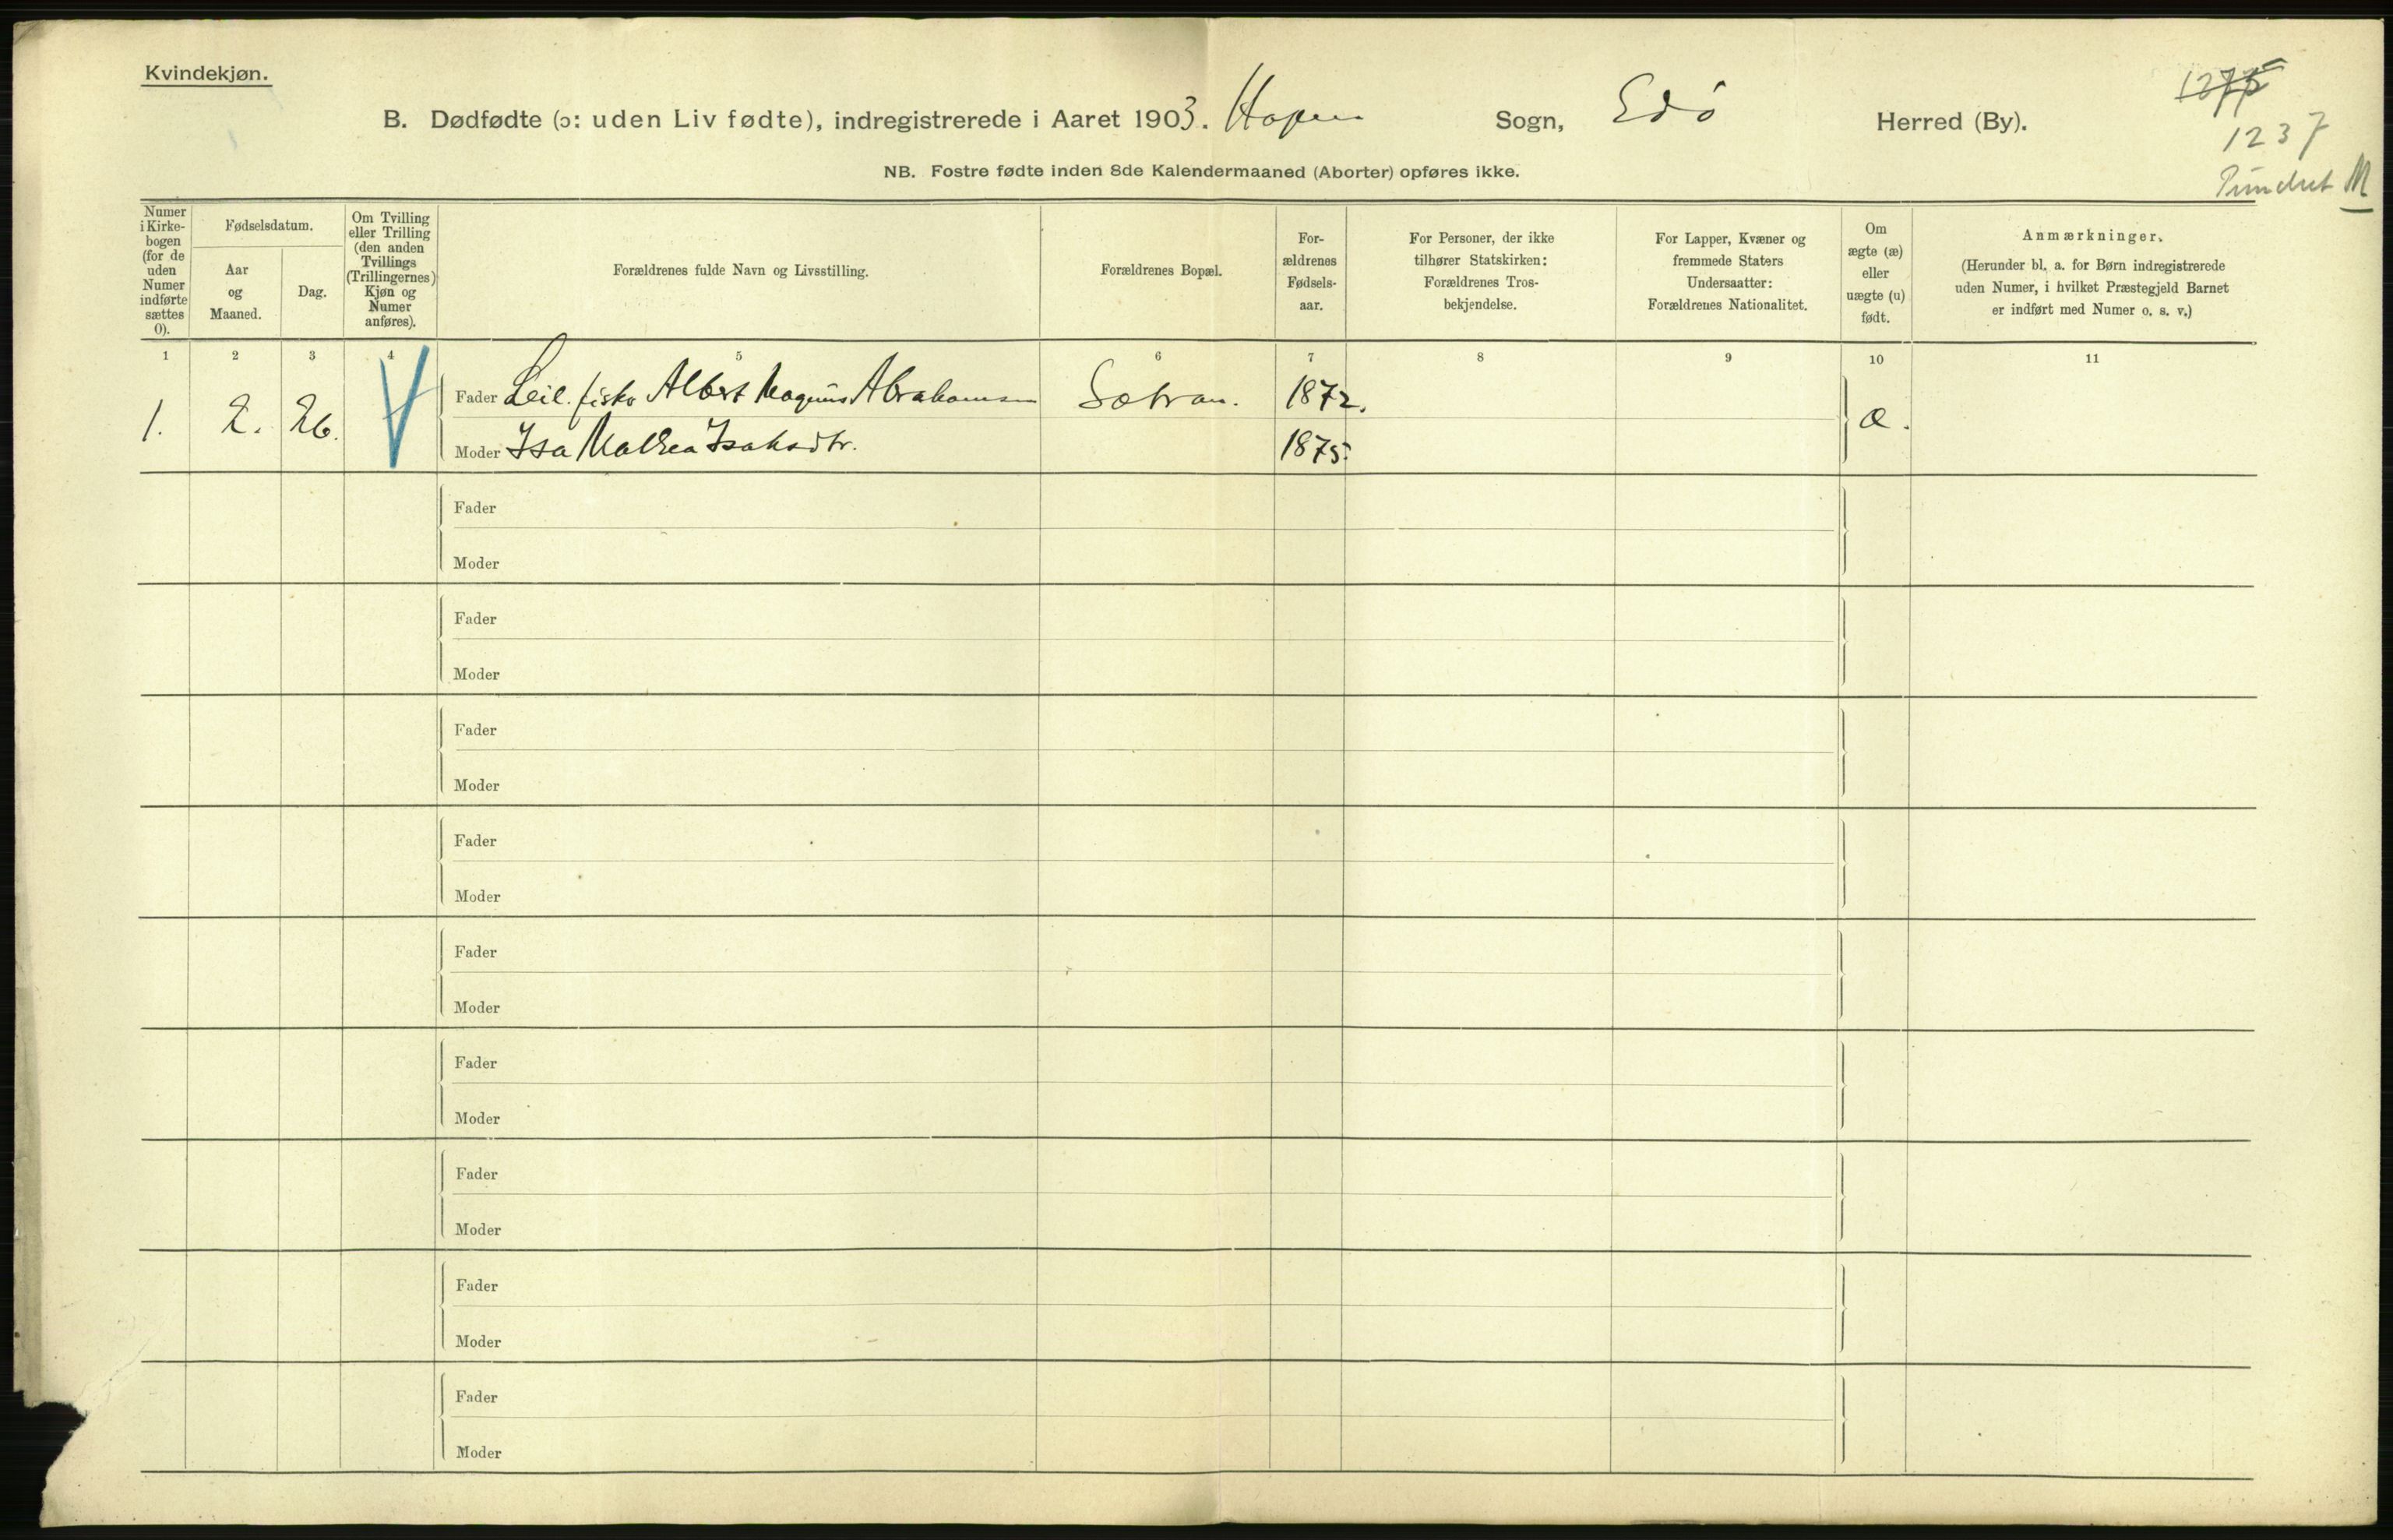 Kvindekjøn.
1275
B. Dødfødte (ɔ: uden Liv fødte), indregistrerede i Aaret 1903. Hopen Sogn, Edø Herred (By).
1237
M
NB. Fostre fødte inden 8de Kalendermaaned (Aborter) opføres ikke.
Numer
i Kirke-
bogen
(for de
uden
Numer
indførte
sættes
0).
Fødselsdatum.
Aar
og
Maaned.
Dag.
Om Tvilling
eller Trilling
(den anden
Tvillings
(Trillingernes)
Kjøn og
Numer
anføres).
Forældrenes fulde Navn og Livsstilling.
Forældrenes Bopæl.
For-
ældrenes
Fødsels-
aar.
For Personer, der ikke
tilhører Statskirken:
Forældrenes Tros-
bekjendelse.
For Lapper, Kvæner og
fremmede Staters
Undersaatter:
Forældrenes Nationalitet.
Om
ægte (æ)
eller
uægte (u)
født.
Anmærkninger.
(Herunder bl. a. for Børn indregistrerede
uden Numer, i hvilket Præstegjeld Barnet
er indført med Numer o. s. v.)
1 2 3 4 5 6 7 8 9 10 11
Fader Leil. fisker Albert Magnus Abrahamsen Sætran. 1872.
1. 2. 26. æ.
Moder Isa Mathea Isaksdtr. 1875.
Fader
Moder
Fader
Moder
Fader
Moder
Fader
Moder
Fader
Moder
Fader
Moder
Fader
Moder
Fader
Moder
Fader
Moder